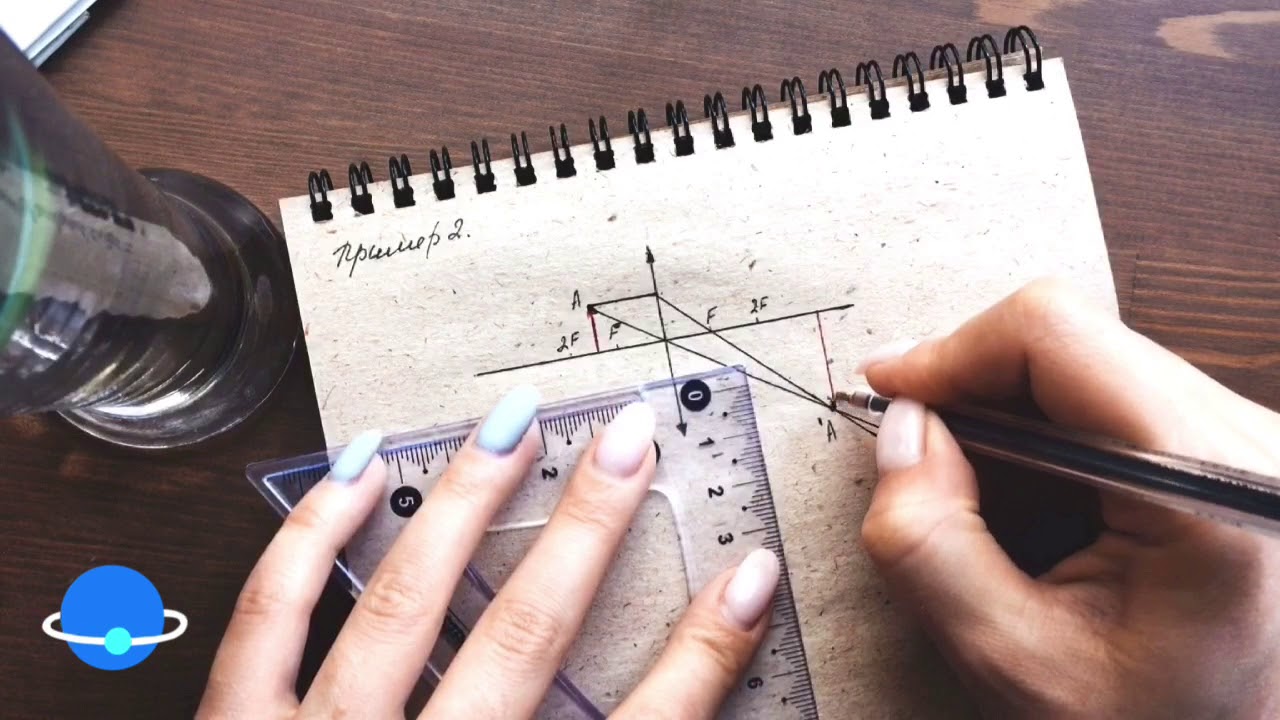 Пример 2.
A
2F F
F 2F
A
0
1
2
3
6
5
2